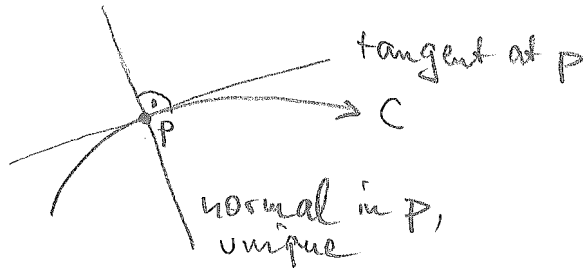 tangent at p
C
p
normal in p,
unique